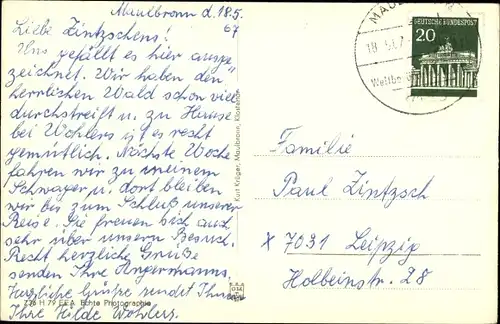 Maulbronn d. 18.5.
67
Liebe Zintzschens!
Uns gefällt es hier ausge
zeichnet. Wir haben den
herrlichen Wald schon viel
durchstreift u. zu Hause
bei Wohlers ist es recht
gemütlich. Nächste Woche
fahren wir zu meinem
Schwager u. dort bleiben
wir bis zum Schluß unserer
Reise. Sie freuen sich auch
sehr über unsern Besuch.
Recht herzliche Grüße
senden Ihre Angermanns.
Herzliche Grüsse sendet Ihnen
Ihre Hilde Wohlers.
Z35 H 79 EEA Echte Photographie
Kurt Krüger, Maulbronn, Klosterhof
MAUL
18.5.67
DEUTSCHE BUNDESPOST
20
Familie
Paul Zintzsch
x 7031 Leipzig
Holbeinstr. 28